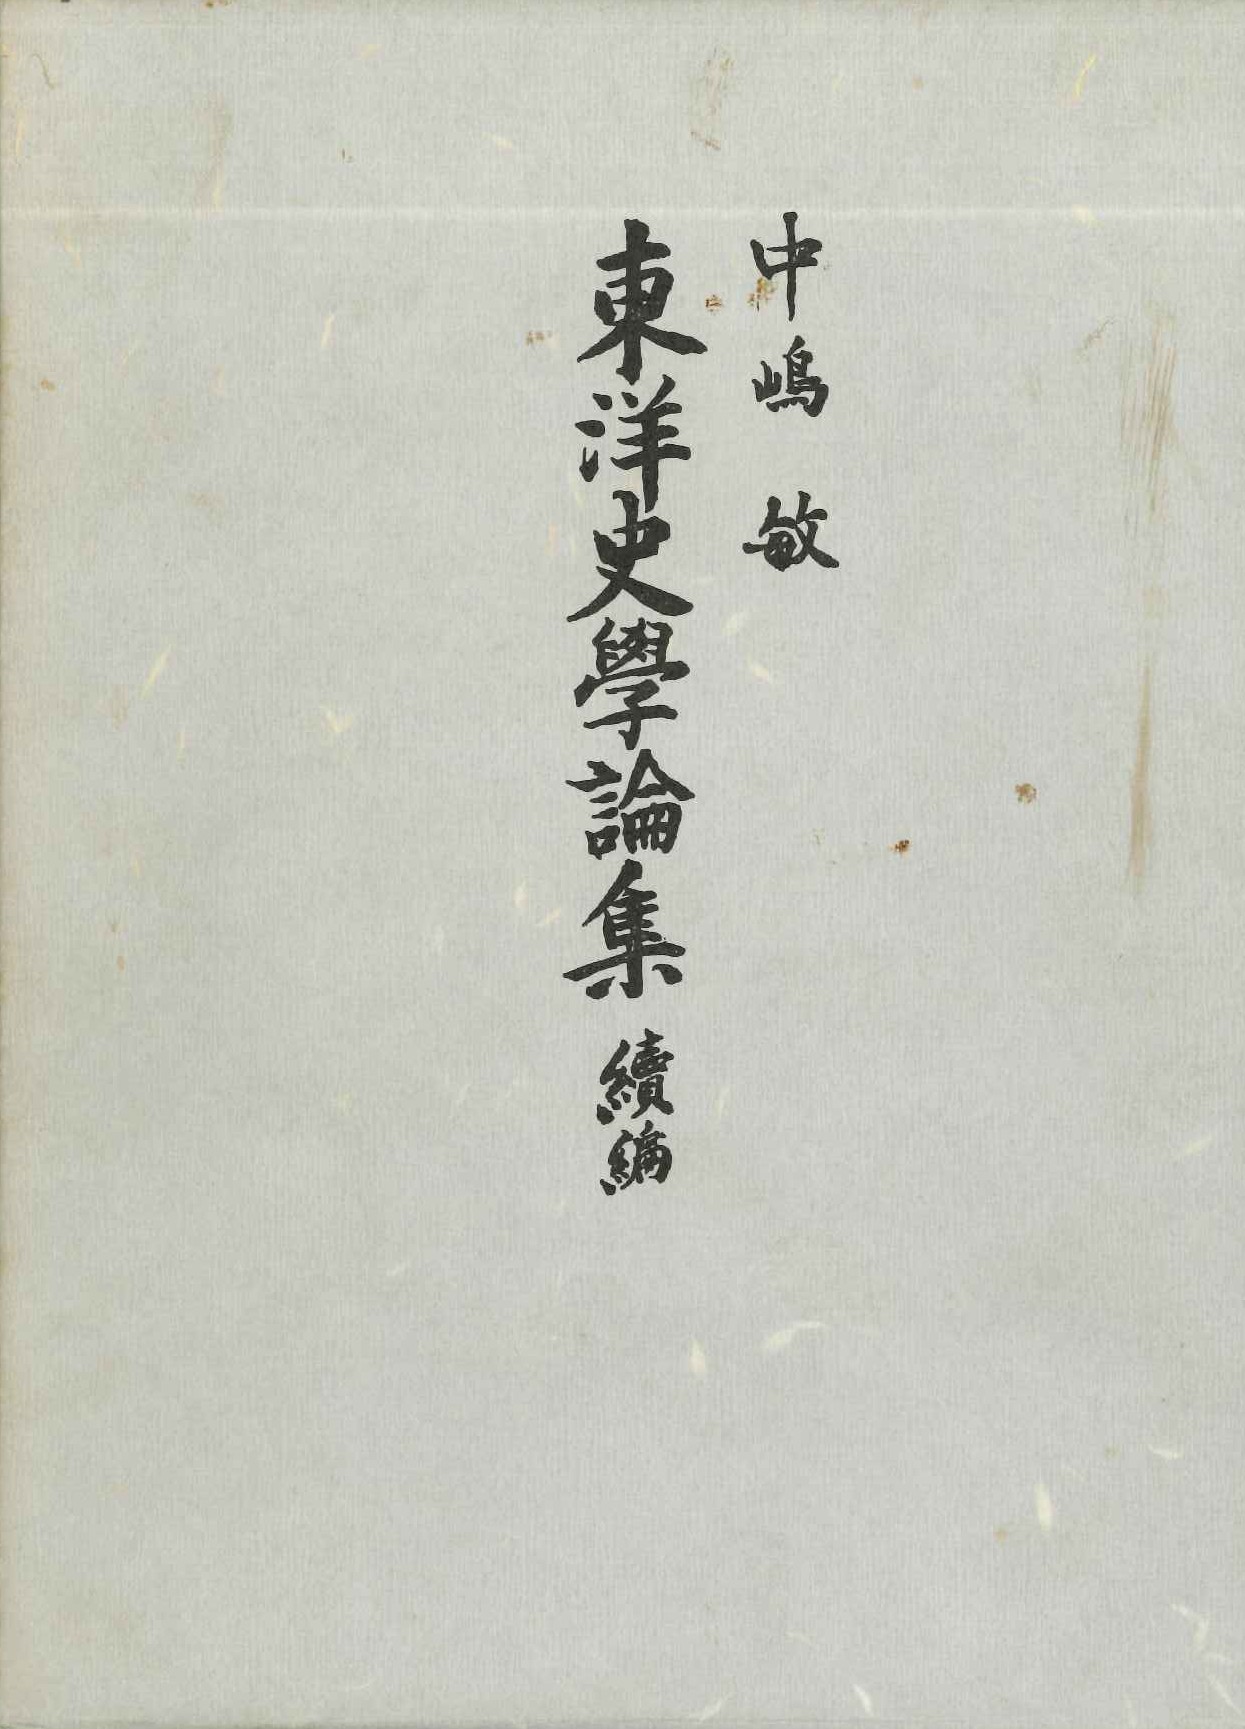 中嶋 敏
東洋史學論集 續編